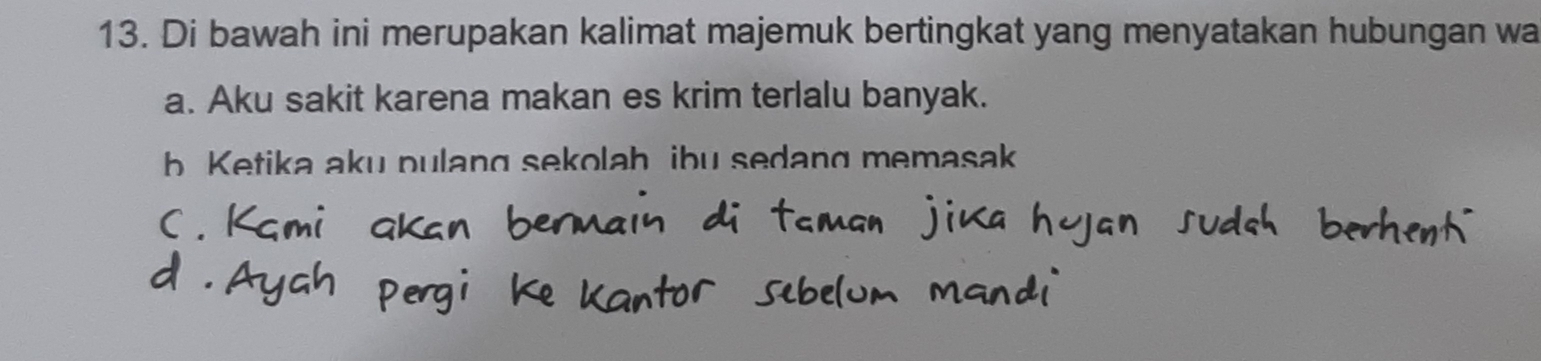 13. Di bawah ini merupakan kalimat majemuk bertingkat yang menyatakan hubungan wa
a. Aku sakit karena makan es krim terlalu banyak.
b Ketika aku pulang sekolah ibu sedang memasak
C. Kami akan bermain di taman jika hujan sudah berhenti
d. Ayah pergi ke kantor sebelum mandi